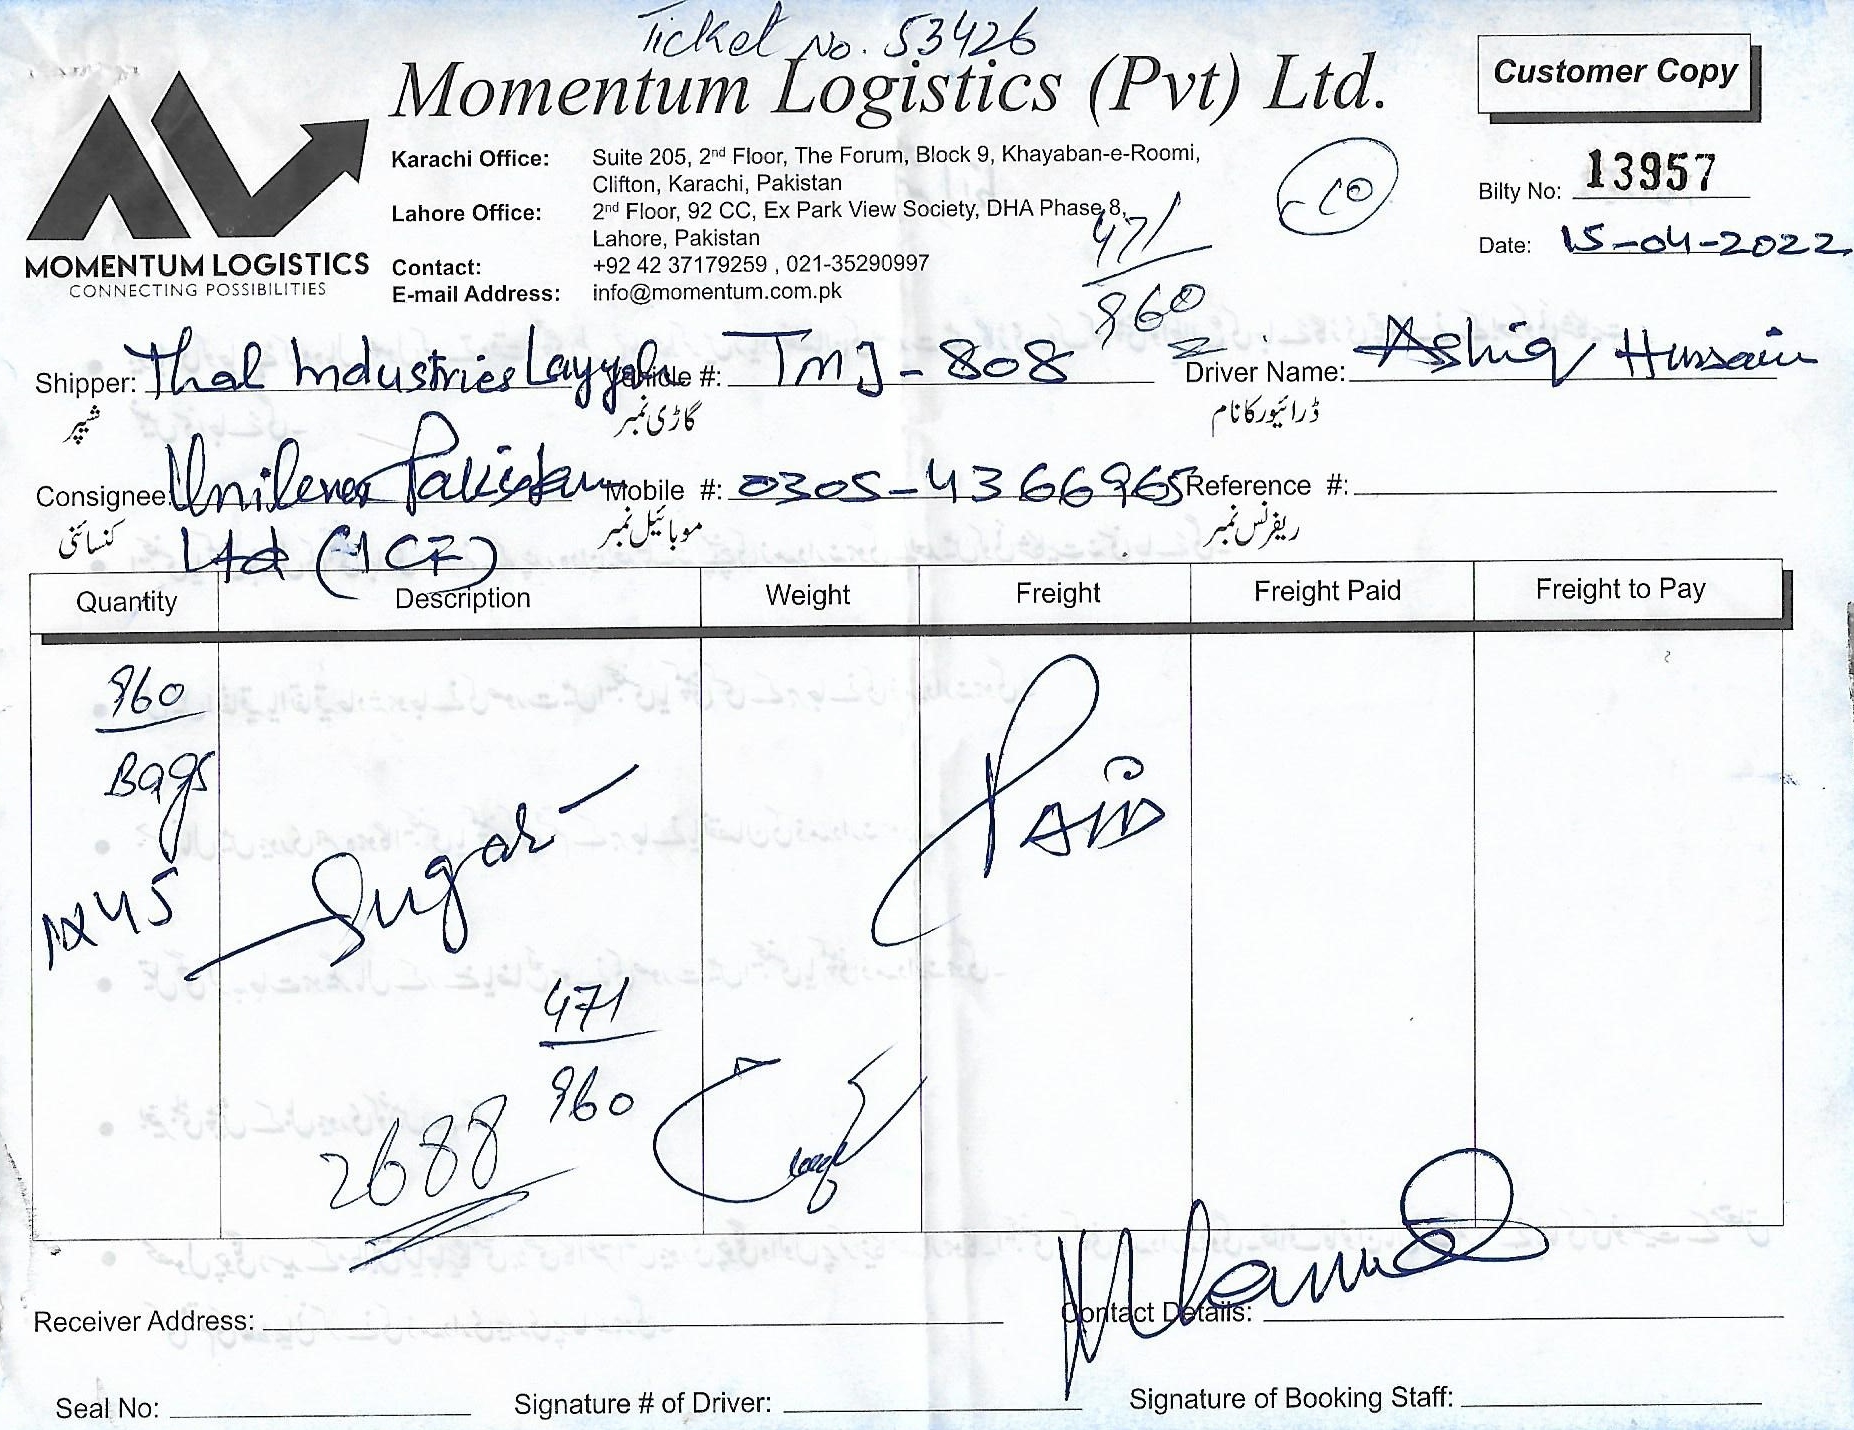 Ticket No. 53426
Momentum Logistics (Pvt) Ltd.
Customer Copy
MOMENTUM LOGISTICS
CONNECTING POSSIBILITIES
Karachi Office: Suite 205, 2nd Floor, The Forum, Block 9, Khayaban-e-Roomi,
Clifton, Karachi, Pakistan
Lahore Office: 2nd Floor, 92 CC, Ex Park View Society, DHA Phase 8,
Lahore, Pakistan
Contact: +92 42 37179259 , 021-35290997
E-mail Address: info@momentum.com.pk
10
471
960
Bilty No: 13957
Date: 15-04-2022
Shipper: Thal Industries Layyah Vehicle #: TMJ-808 Driver Name: Ashiq Hussain
شپر گاڑی نمبر ڈرائیور کا نام
Consignee: Unilever Pakistan Mobile #: 0305-4366965 Reference #:
کنسائنی Ltd موبائیل نمبر ریفرنس نمبر
Quantity Description Weight Freight Freight Paid Freight to Pay
960
Bags
Sugar
PAID
471
960
2688
Receiver Address: Contact Details:
Seal No: Signature # of Driver: Signature of Booking Staff: